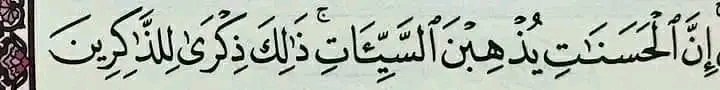 إِنَّ ٱلْحَسَنَـٰتِ يُذْهِبْنَ ٱلسَّيِّـَٔاتِ ۚ ذَٰلِكَ ذِكْرَىٰ لِلذَّٰكِرِينَ